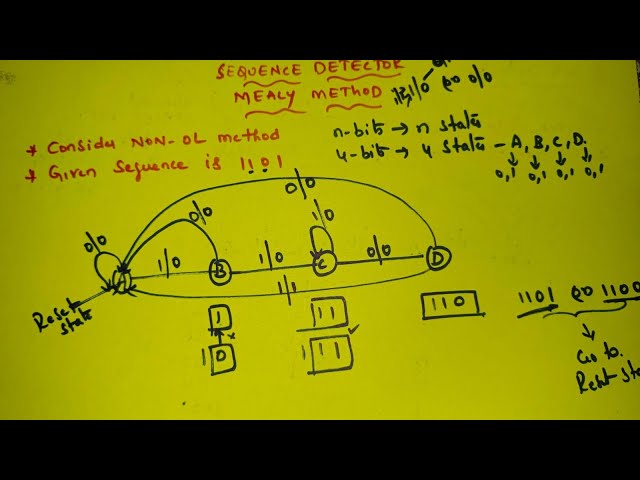 SEQUENCE DETECTOR
MEALY METHOD
* Consider NON-OL method
* Given Sequence is 1101
n-bit → n state
4-bit → 4 state - A, B, C, D.
0,1 0,1 0,1 0,1
0/0
0/0
1/0
0/0
1/0
1/0
0/0
B
C
D
1/1
Reset
state
1
1 0
11
1 11
110
1101 1100
Go to